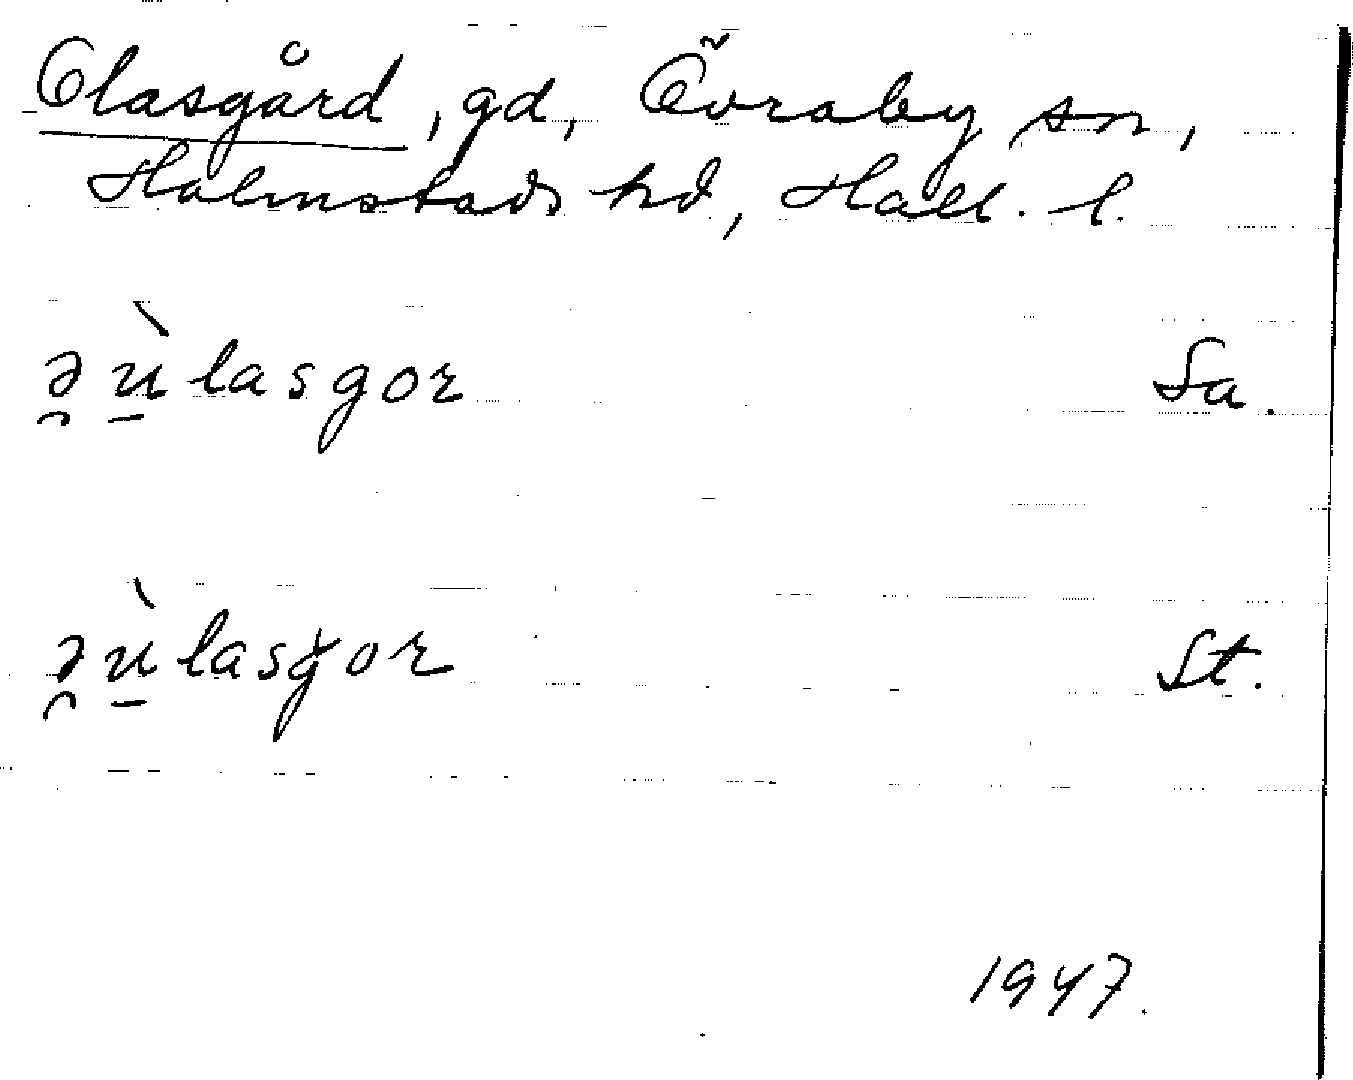 Olasgård, gd, Övraby sn,
Halmstads hd, Hall. l.
ə̯ù̱lasgor Sa.
ə̯ù̱lasgor St.
1947.